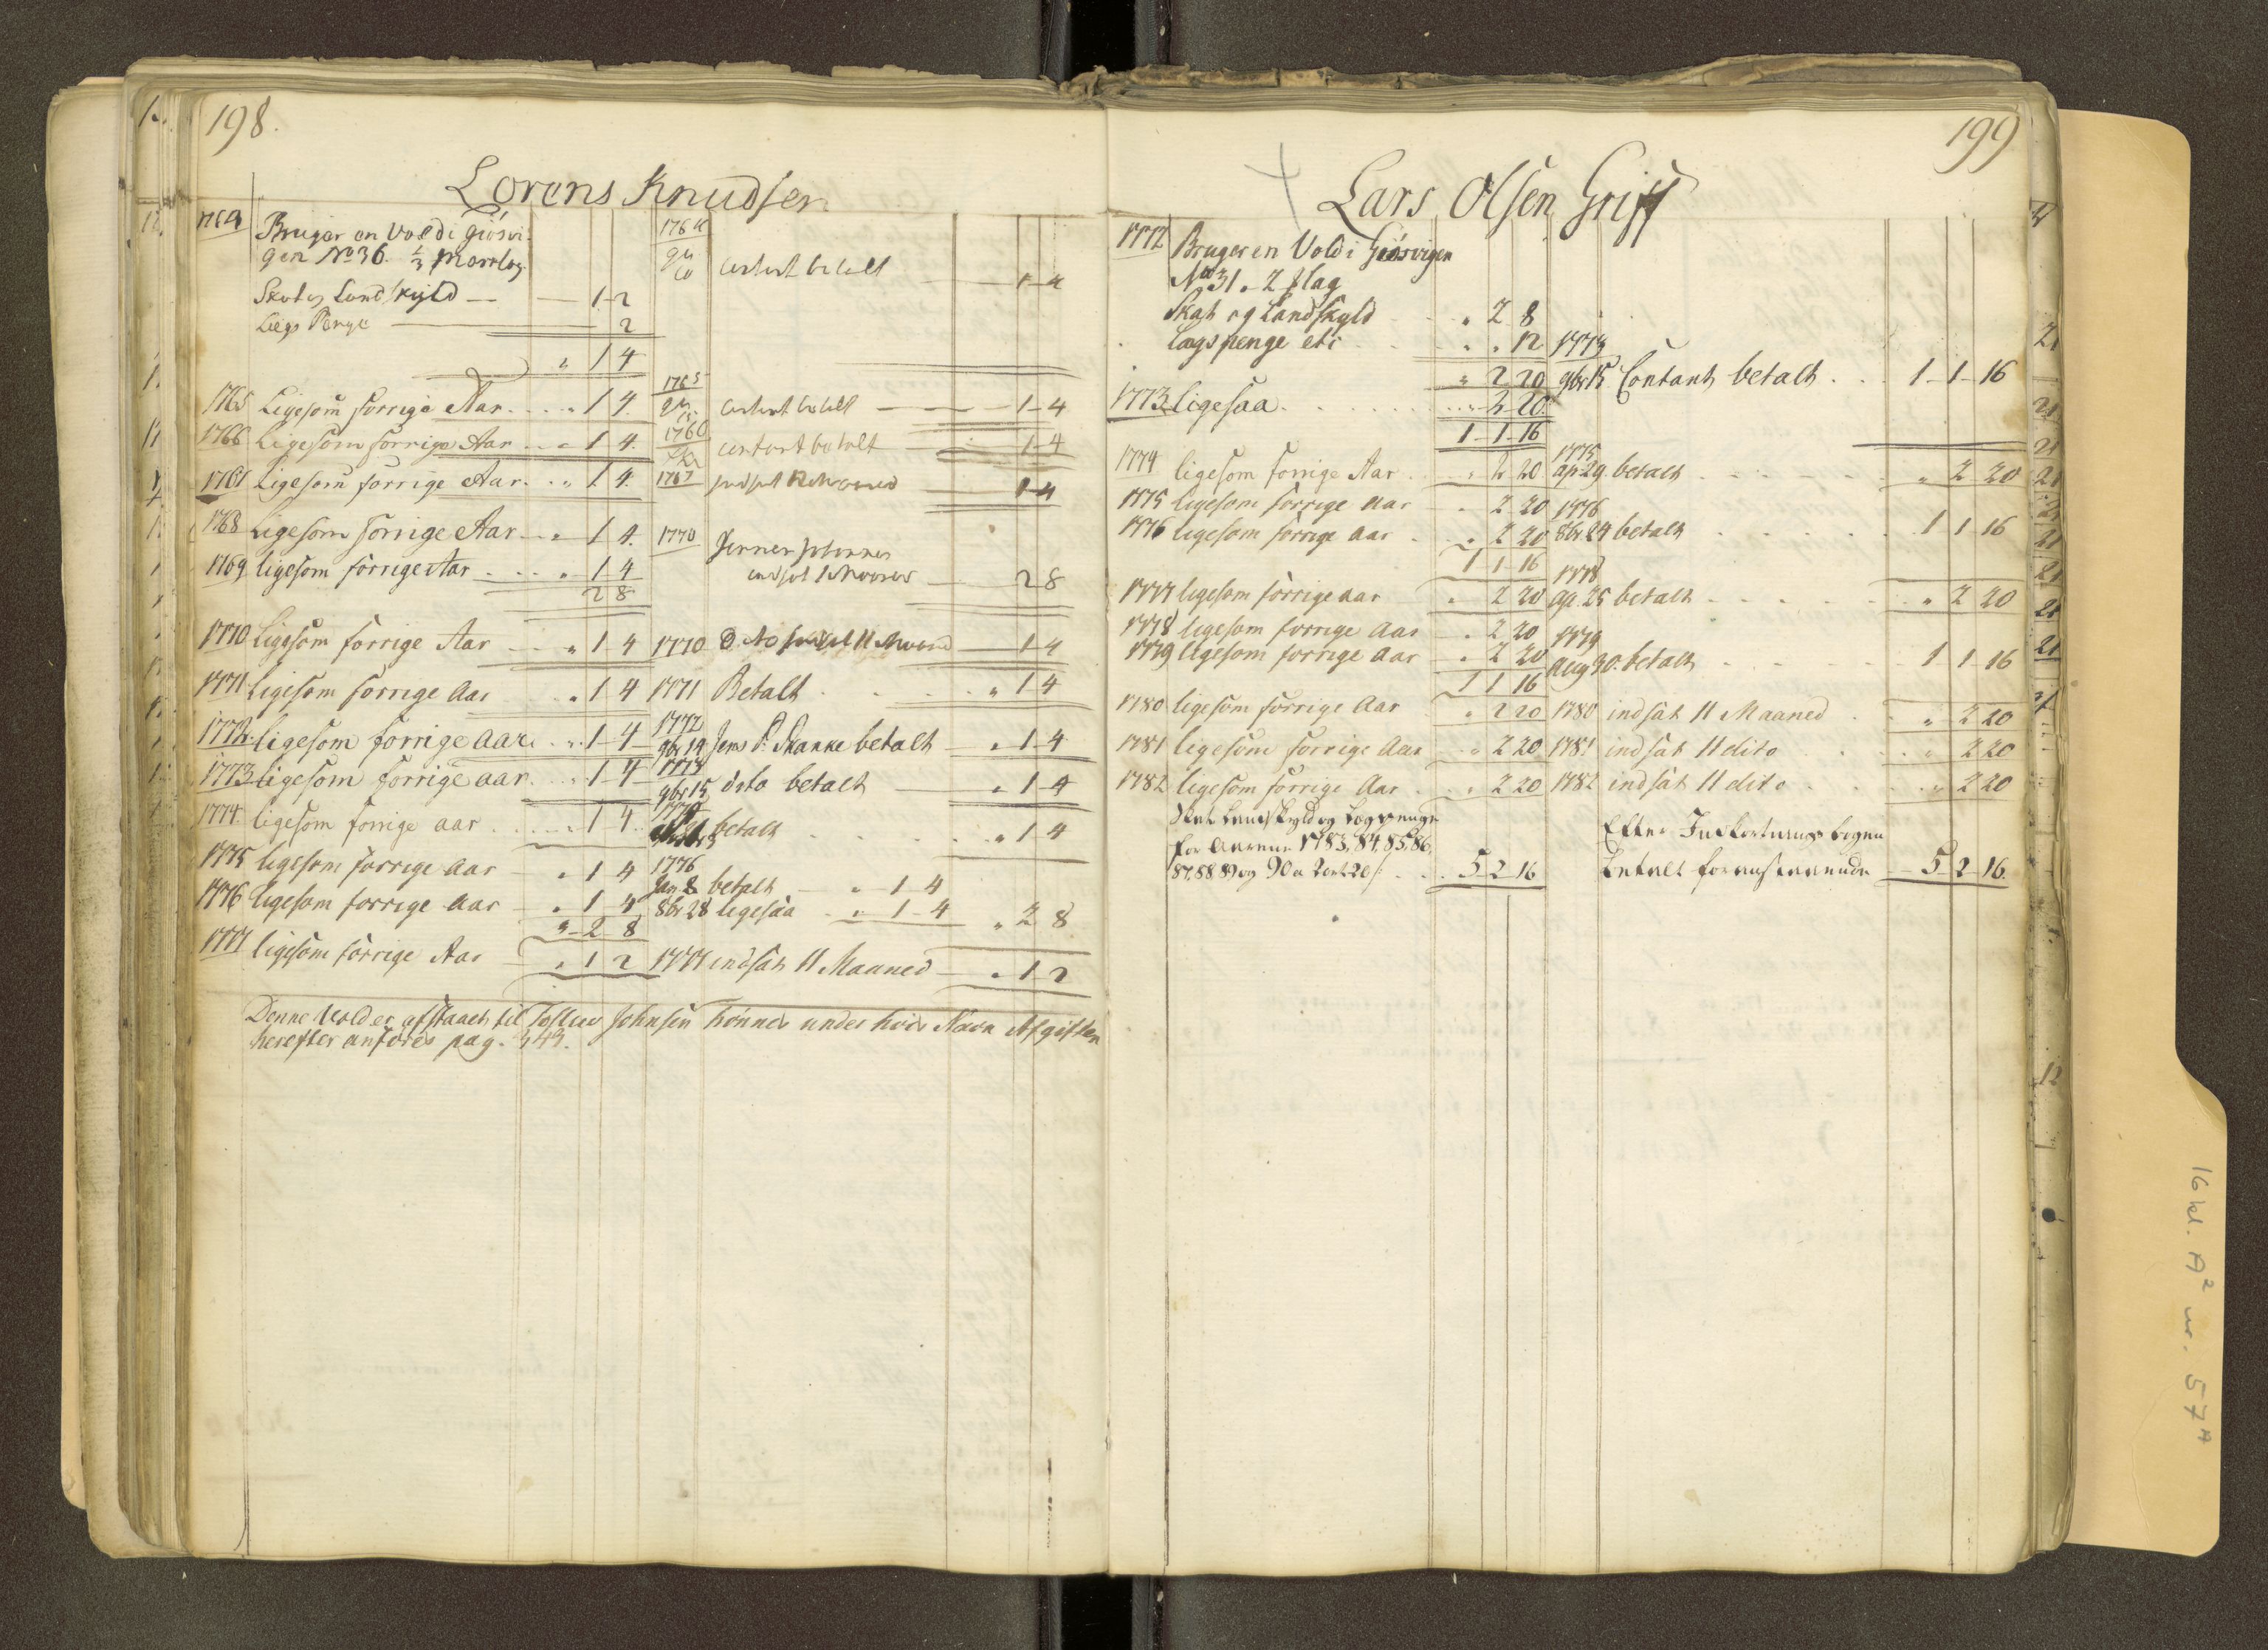 198.
Lorens Knudsen
1764 Bruger en Vold i Giösvi-
gen No 36. 1/3 Mæreløg
Skat og Landskyld — — 1 - 2
Lægs Penge — 2
" 1 4
1764
contant betalt — 1 - 4
1765 Ligesom forrige Aar. . . . " 1 4.
1765
contant betalt — 1 - 4
1766 Ligesom forrige Aar . . " 1 4.
1766
contant betalt — 1 - 4
1767 Ligesom forrige Aar. . . " 1 4.
1767 indsat 12 Maaned — 1 4
1768 Ligesom forrige Aar . . " 1 4.
1769 ligesom forrige Aar . . . . " 1 4
2 8
1770
indsat Maaned — 2 8
1770 ligesom forrige Aar — " 1 4
1770 D. No indsat 11 Maaned — 1 4
1771 Ligesom forrige Aar . " 1 4
1771 Betalt . . . . . " 1 4
1772 ligesom forrige aar. . ". 1 - 4
1772
9br 19 Jens P. Skanke betalt — " 1 4
1773 ligesom forrige aar. . . " 1 - 4
1773
9br 15 dito betalt — " 1 - 4
1774. ligesom forrige aar . . . . . " 1 4.
betalt . . . . . . " 1 4
1775 ligesom forrige Aar — " 1 4
1776 ligesom forrige Aar — " 1 - 4
" - 2 8
1776
Jan 8 betalt — " - 1 4
8br 28 ligesaa . . " 1 - 4 " 2 8
1777 ligesom forrige Aar — " 1 2
1777 indsat 11 Maaned — " 1 2
Denne Vold er afstaaet til Tollew Johnsen Hönnes under hvis Navn Afgiften
herefter anføres pag. 249.
199
Lars Olsen Griff
1772 Bruger en Vold i Giösvigen
No 31. - 2 flag
Skat og Landskyld . . " 2 8
Lægs penge etc . . . " . 12
" 2 20
1773 ligesaa . . . . . . . . " 2 20.
1 - 1 - 16
1773
9br 15 Contant betalt . . . 1 - 1 - 16
1774 ligesom forrige Aar . . . " 2 20
1775
ap 29. betalt . . . . . . " 2 20
1775 ligesom forrige aar . . " 2 20
1776 ligesom forrige aar . . " 2 20
1 1 - 16
1776
8br 24 betalt . . . . . . 1 1 16
1777 ligesom forrige aar . " 2 20
1778
ap 25 betalt . . . . . . " 2 20
1778 ligesom forrige Aar — " 2 20
1779 ligesom forrige aar — " 2 20
1 1 16
1779
Aug 30. betalt . . . . . 1 1 16
1780 ligesom forrige Aar . " 2 20
1780 indsat 11 Maaned . . " 2 20
1781 ligesom forrige Aar . " 2 20
1781 indsat 11 dito . . . " 2 20
1782 ligesom forrige Aar . . " 2 20
1782 indsat 11 dito . . . . " 2 20
Skat Landskyld og Lægspenge
for Aarene 1783, 84, 85, 86,
87, 88 89 og 90 a 2 ort 20 s: . . . 5 - 2 - 16
Efter Indkortnings bogen
betalt foranstaaende — 5 - 2 16.
16 kl. A2 nr. 57A